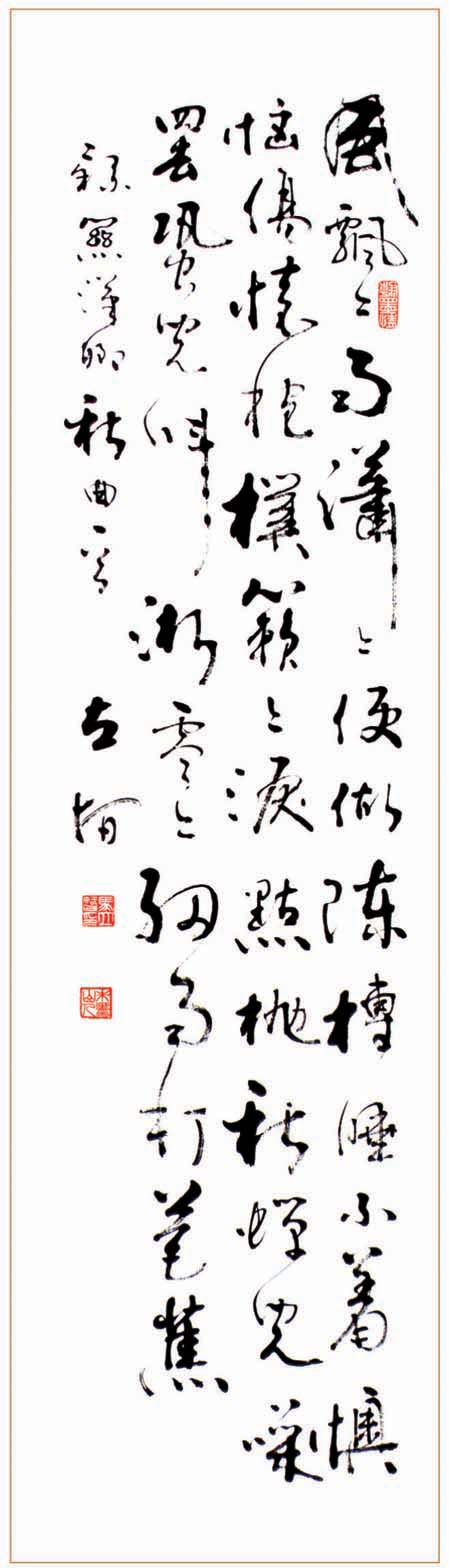 風飄々雨瀟々便做陳摶睡不着懊
惱傷懷抱撲簌々淚點抛秋蟬兒噪
罢蛩兒叫淅零々細雨打芭蕉
錄關漢卿秋曲一首